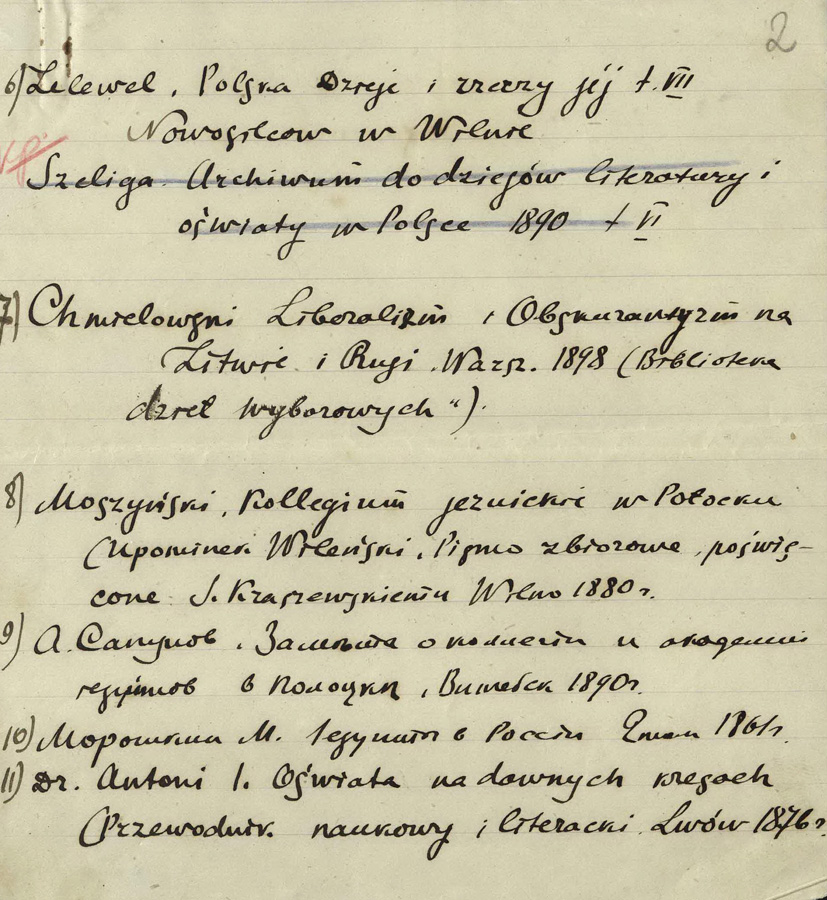 2
6) Lelewel, Polska Dzieje i rzeczy jéj t. VII
Nowosilcow w Wilnie
Szeliga. Archiwum do dziejów literatury i
oświaty w Polsce 1890 t VI
7) Chmielowski Liberalizm i Obskurantyzm na
Litwie i Rusi. Warsz. 1898 (Biblioteka
dzieł wyborowych").
8) Moszyński, Kollegium jezuickie w Połocku
(Upominek Wileński. Pismo zbiorowe, poświę-
cone J. Kraszewskiemu Wilno 1880 r.
9) А. Сапунов. Заметка о коллегии и академии
иезуитов в Полоцке, Витебск 1890 г.
10) Морошкин М. Иезуиты в России 1867 г.
11) Dr. Antoni I. Oświata na dawnych kresach
(Przewodnik naukowy i literacki. Lwów 1876 r